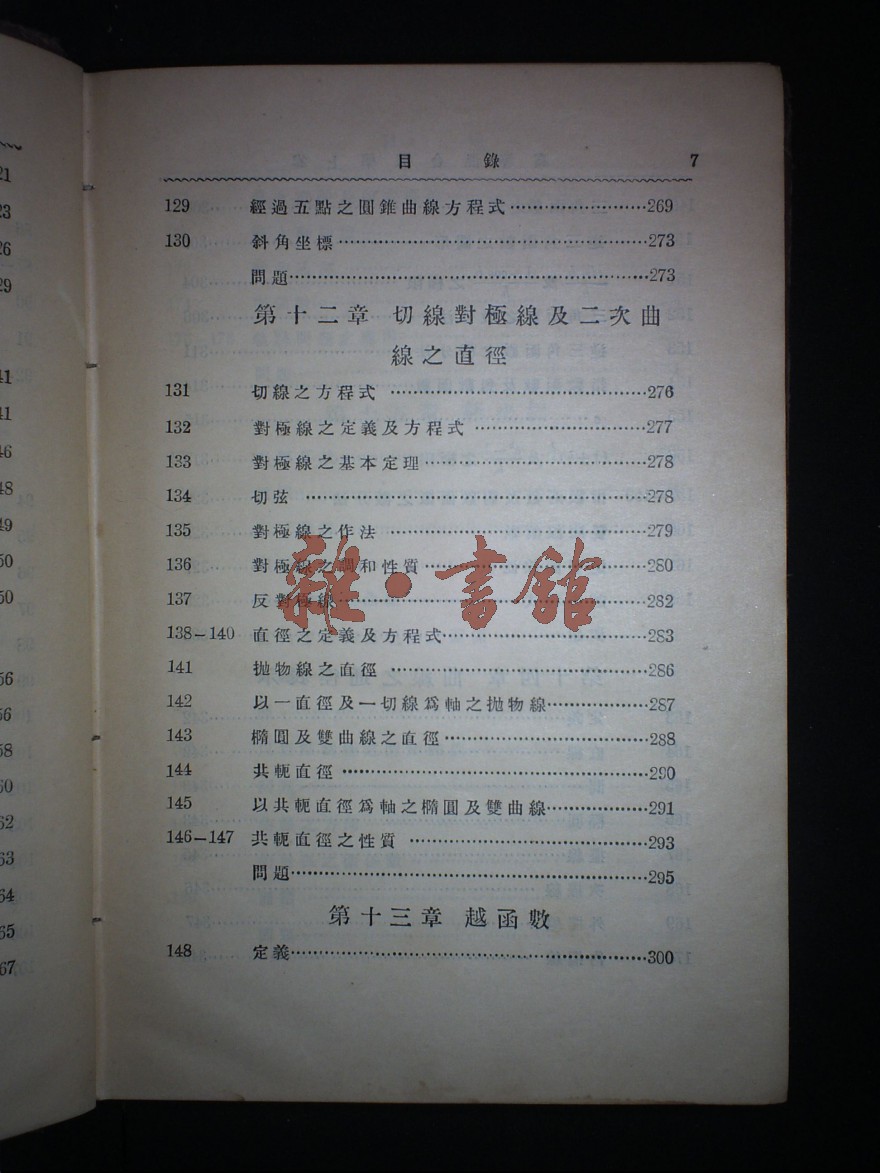 目錄 7
129 經過五點之圓錐曲線方程式……………………269
130 斜角坐標……………………273
問題……………………273
第十二章 切線對極線及二次曲
線之直徑
131 切線之方程式……………………276
132 對極線之定義及方程式……………………277
133 對極線之基本定理……………………278
134 切弦……………………278
135 對極線之作法……………………279
136 對極線之調和性質……………………280
137 反對極線……………………282
138–140 直徑之定義及方程式……………………283
141 拋物線之直徑……………………286
142 以一直徑及一切線爲軸之拋物線……………………287
143 橢圓及雙曲線之直徑……………………288
144 共軛直徑……………………290
145 以共軛直徑爲軸之橢圓及雙曲線……………………291
146–147 共軛直徑之性質……………………293
問題……………………295
第十三章 越函數
148 定義……………………300
雜·書館
21
23
26
29
41
41
46
48
49
50
50
56
56
58
60
62
63
64
65
67